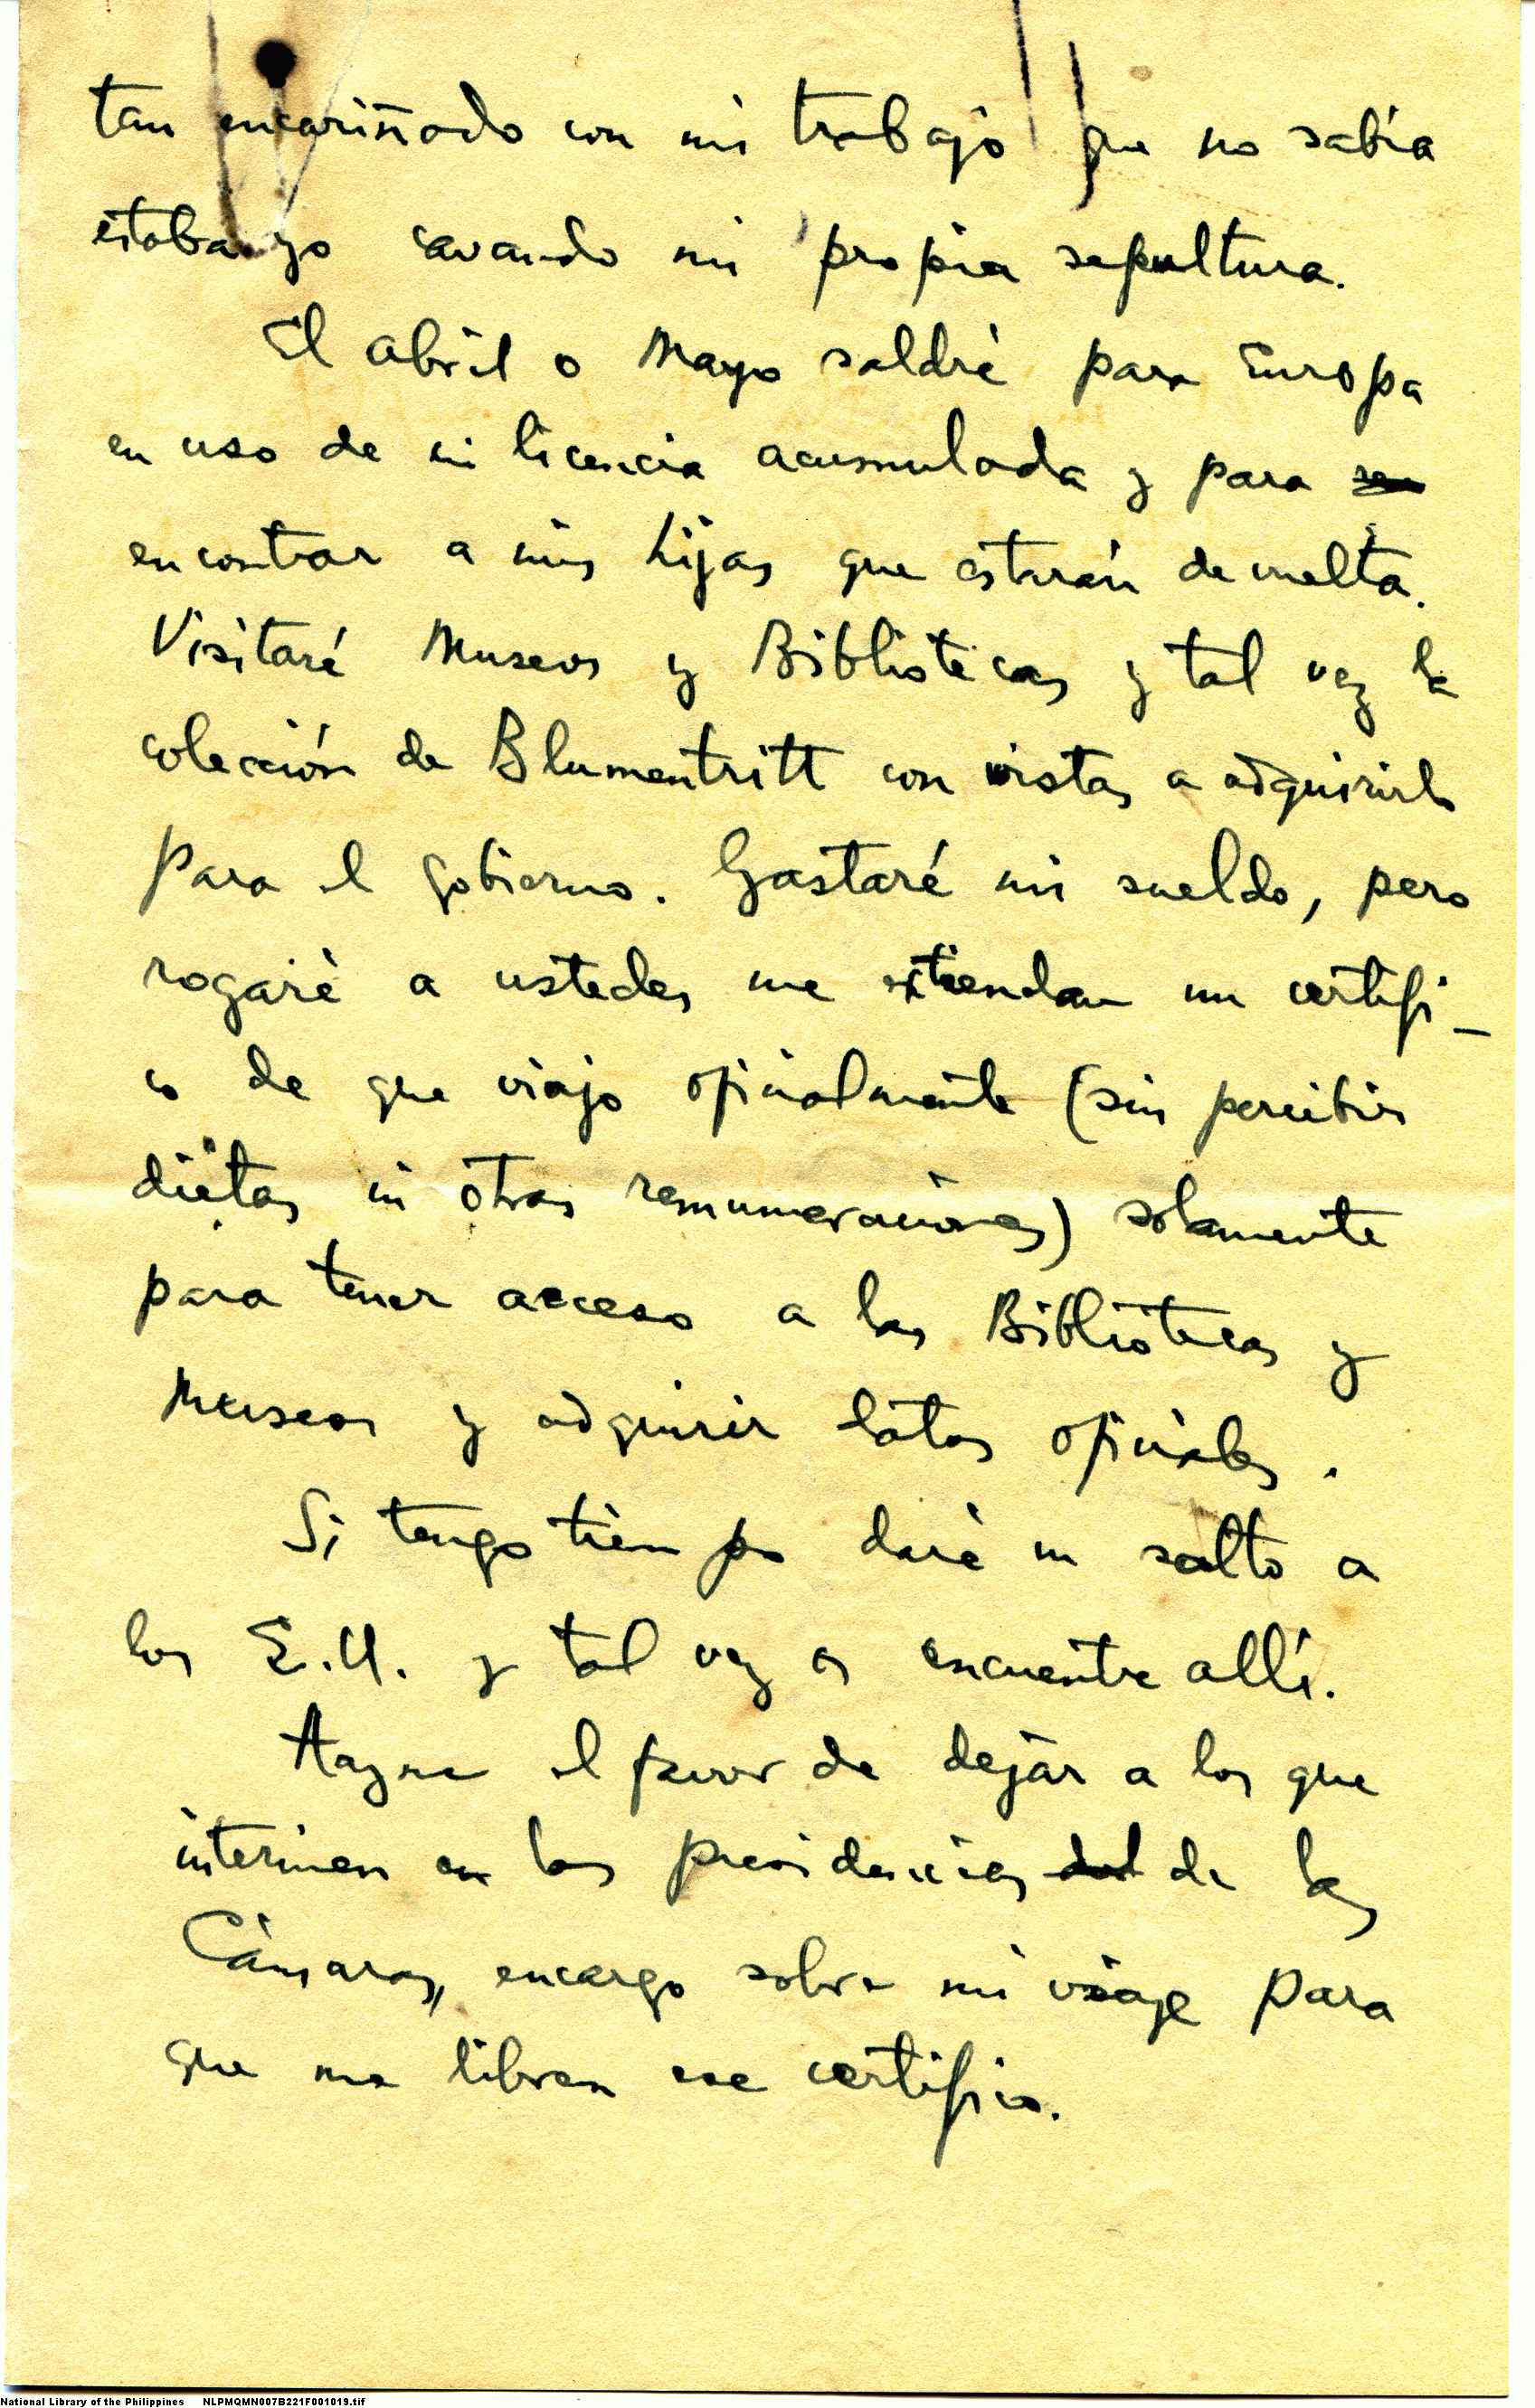 tan encariñado con mi trabajo que no sabía
estaba yo cavando mi propia sepultura.
El abril o Mayo saldré para Europa
en uso de mi licencia acumulada y para
encontrar a mis hijas que estarán de vuelta.
Visitaré Museos y Bibliotecas y tal vez la
colección de Blumentritt con vistas a adquirirla
para el gobierno. Gastaré mi sueldo, pero
rogaré a ustedes me extiendan un certifi-
co de que viajo oficialmente (sin percibir
dietas ni otras remuneraciones) solamente
para tener acceso a las Bibliotecas y
Museos y adquirir datos oficiales.
Si tengo tiempo daré un salto a
los E.U. y tal vez os encuentre allí.
Hagme el favor de dejar a los que
interinen en las presidencias del de las
Cámaras, encargo sobre mi viaje para
que me libren ese certifico.
National Library of the Philippines NLPMQMN007B221F001019.tif